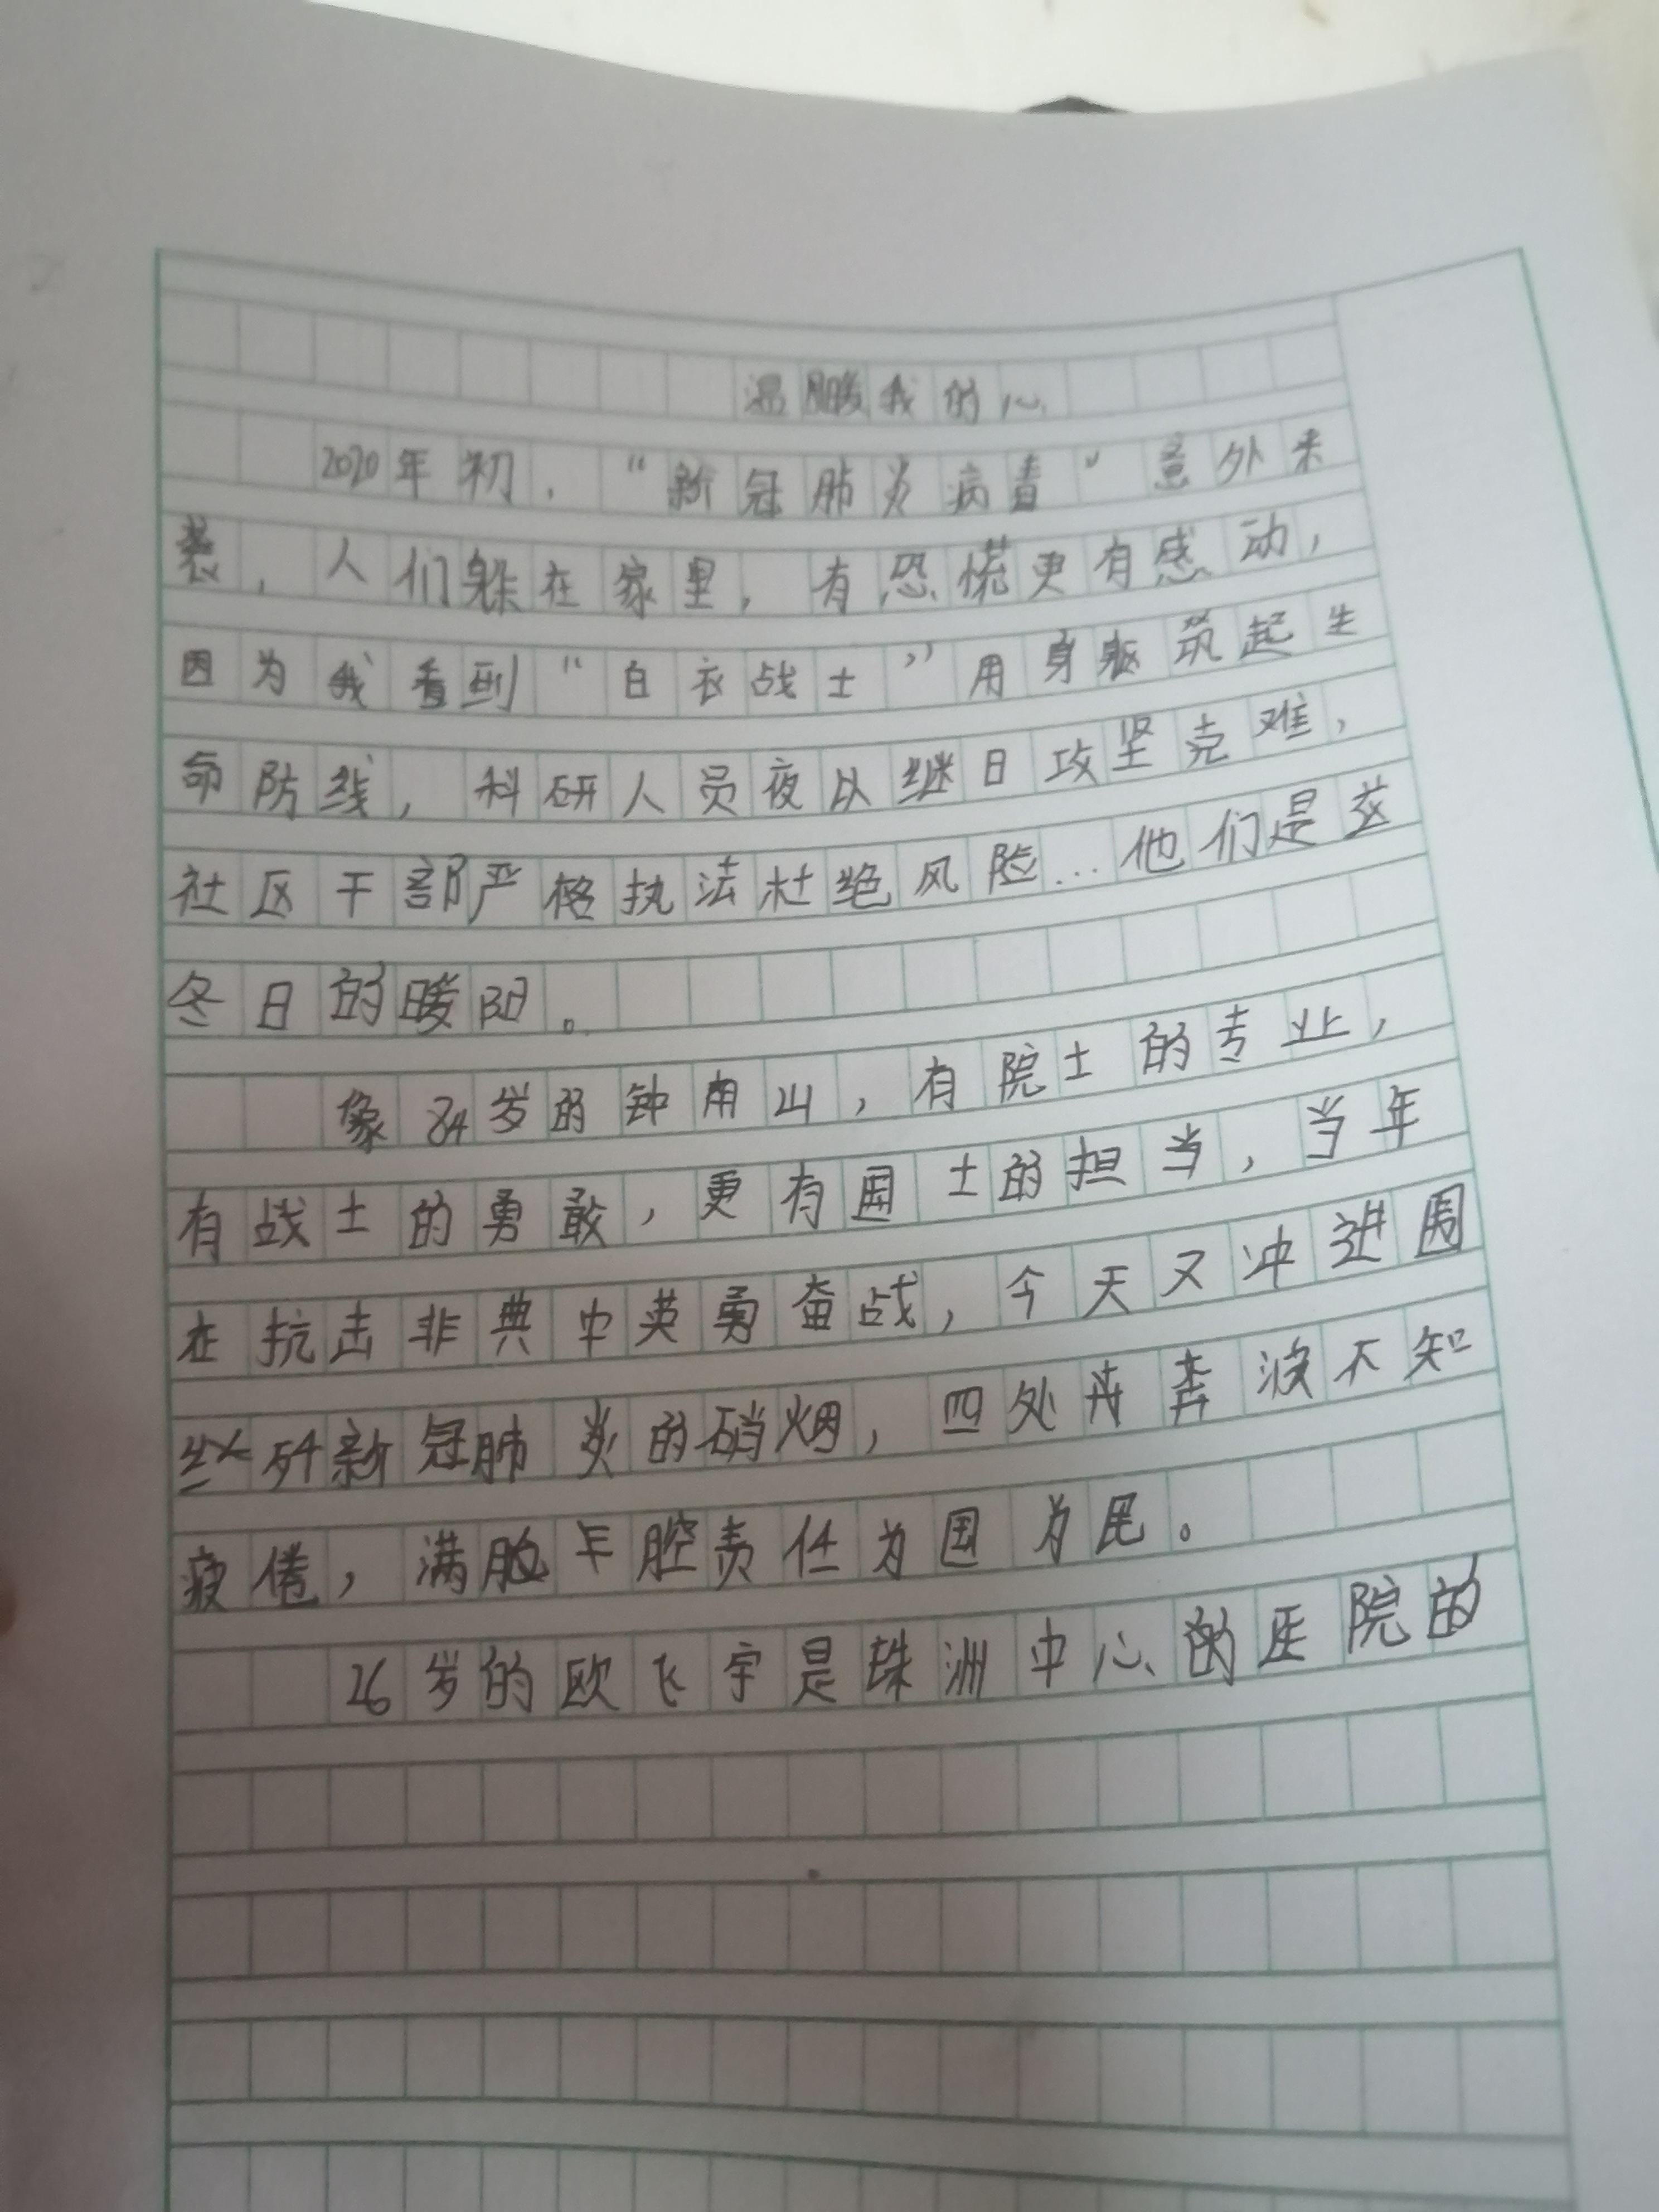 温暖我的心
2020年初，“新冠肺炎病毒”意外来
袭，人们躲在家里，有恐慌更有感动，
因为我看到“白衣战士”用身躯筑起生
命防线，科研人员夜以继日攻坚克难，
社区干部严格执法杜绝风险…他们是这
冬日的暖阳。
像84岁的钟南山，有院士的专业，
有战士的勇敢，更有国士的担当，当年
在抗击非典中英勇奋战，今天又冲进国
新冠肺炎的硝烟，四处奔波不知
疲倦，满脸年腔责任为国为民。
26岁的欧飞宇是珠洲中心的医院的